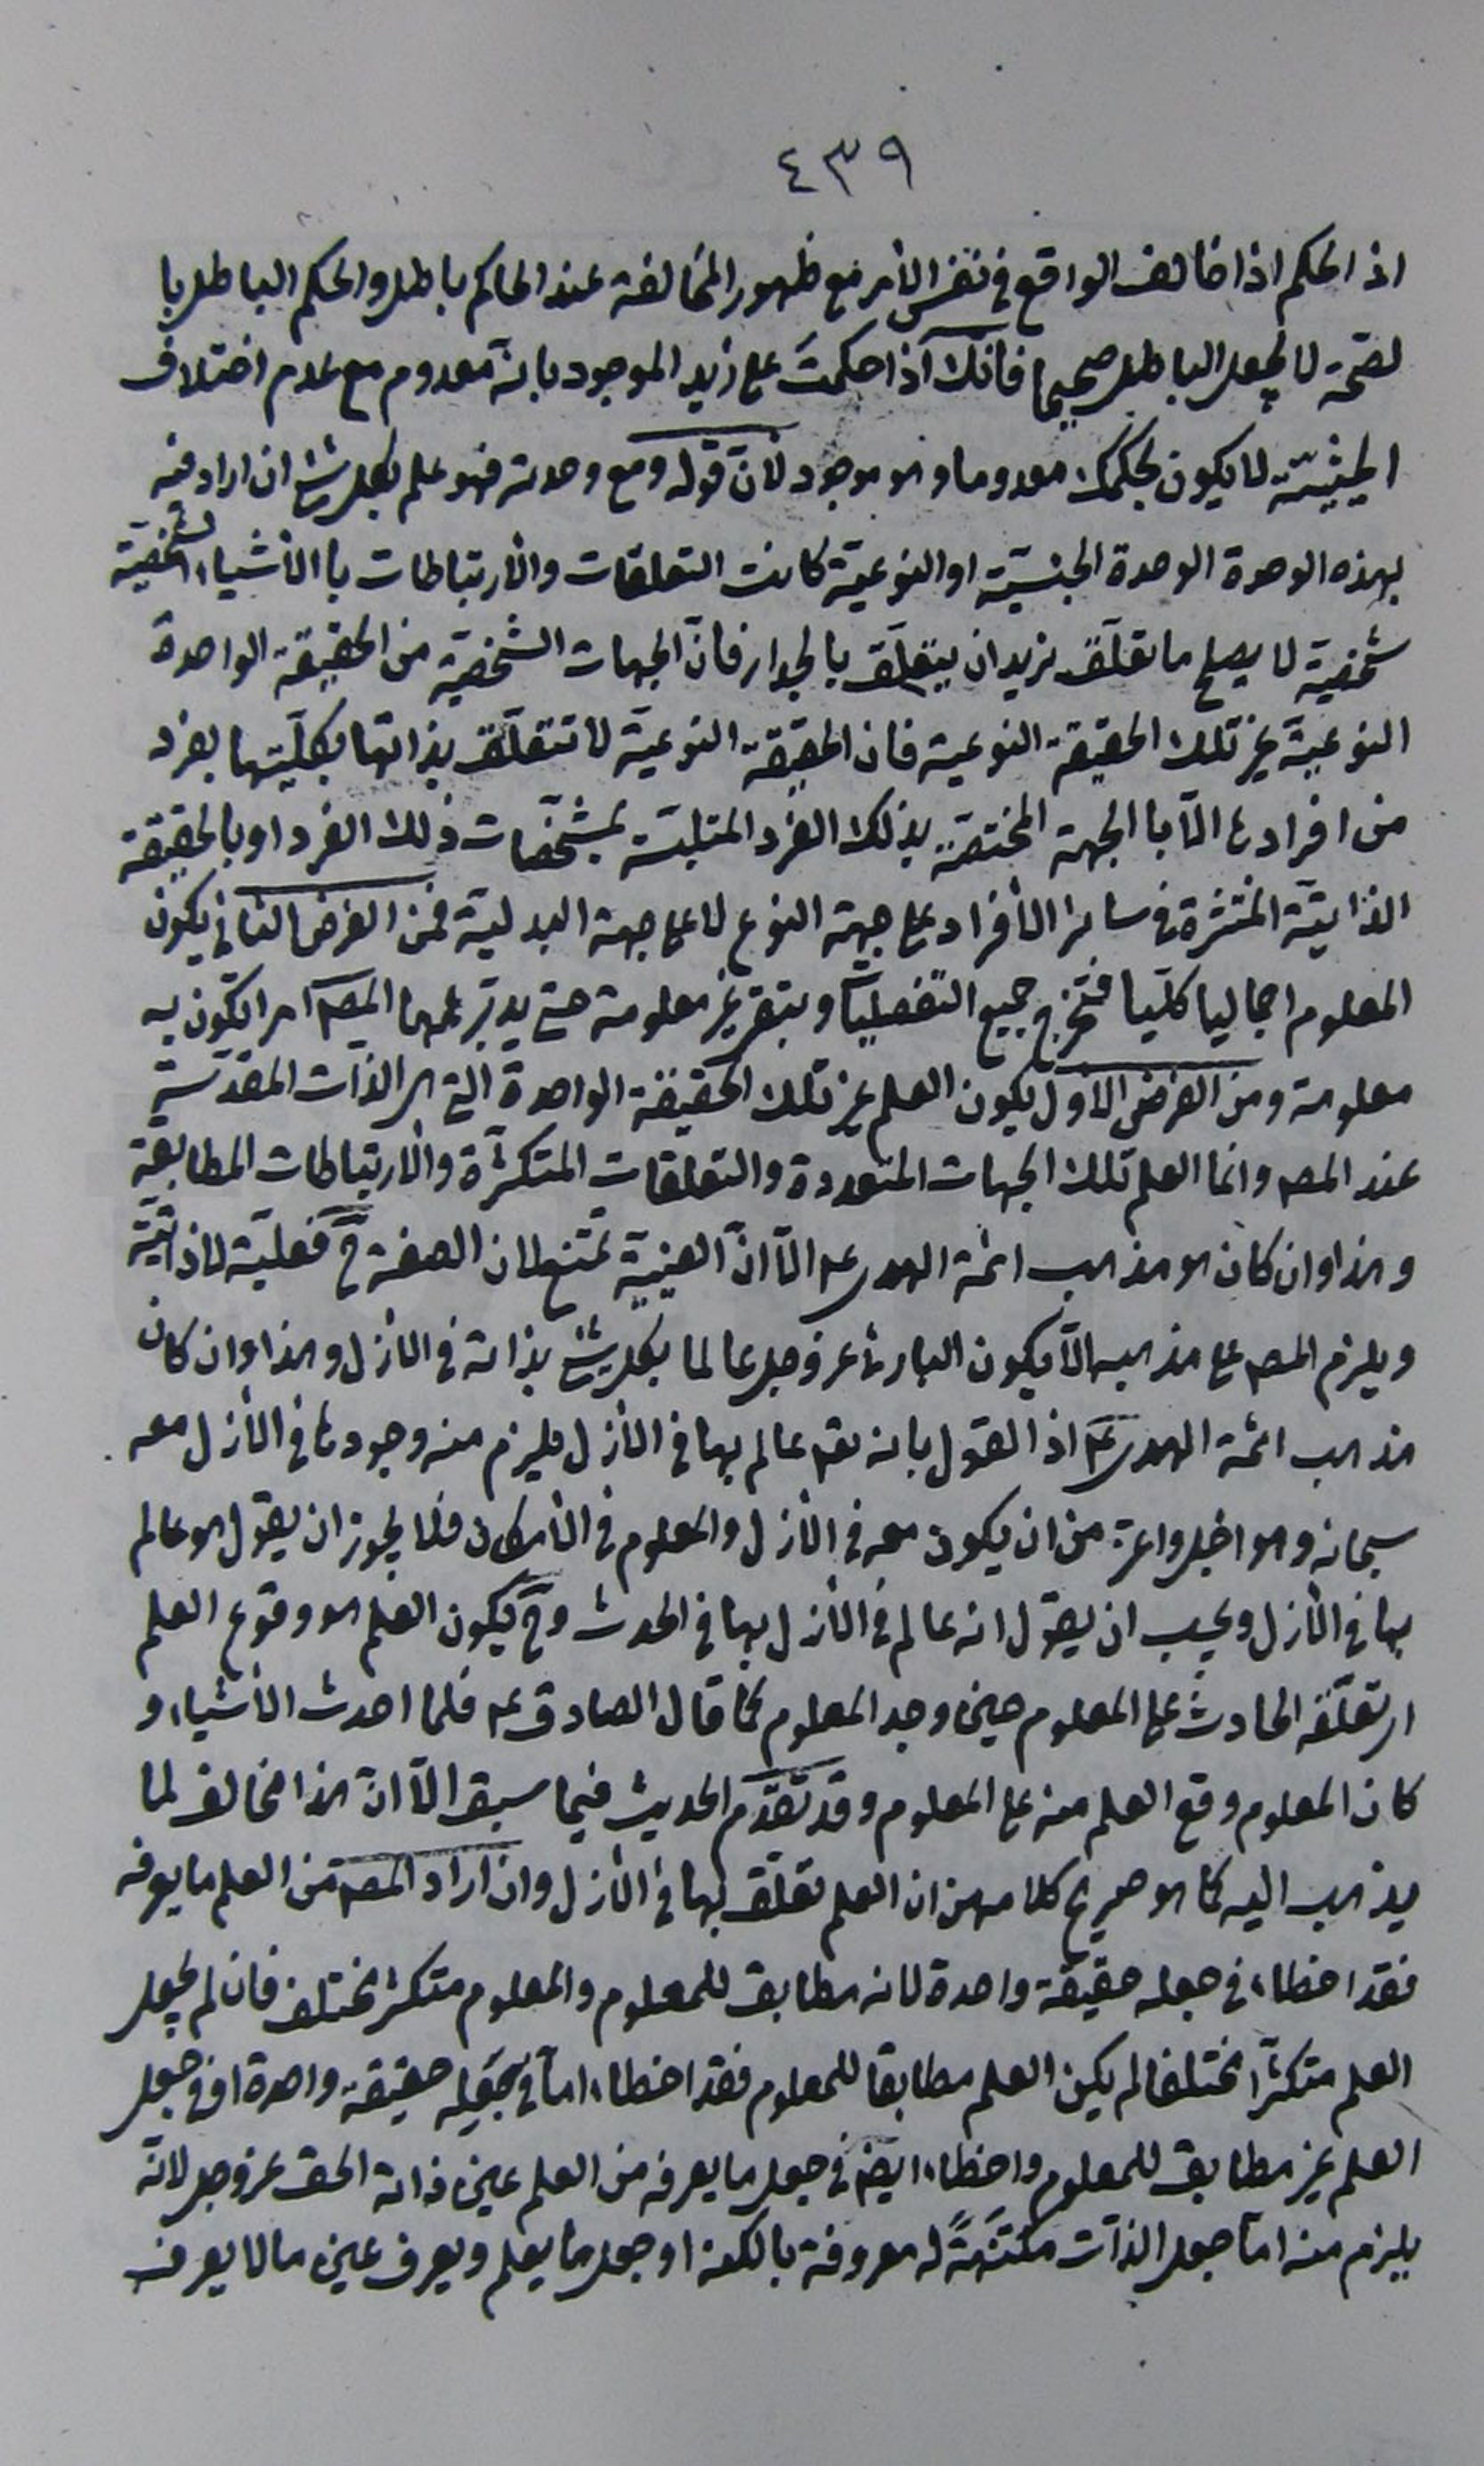 ٤٣٩
اذ الحكم اذا خالف الواقع فى نفس الأمر مع ظهور المخالفة عند الحاكم باطل والحكم الباطل با
لصّحة لا يجعل الباطل صحيحا فانك اذا حكمتَ على زيد الموجود بانّه معدوم مع عدم اختلاف
الحيثيّة لا يكون بحكمك معدوما وهو موجود لأنّ قوله ومع وحدته فهو علم بكل شئ ان اراد منه
بهذه الوحدة الوحدة الجنسيّة او النوعيّة كانت التعلقات والأرتباطات با الأشياء الشخصيّة
شخصية لا يصلح ما تعلّق بزيد ان يتعلّق بالجدار فانّ الجهات الشخصيّة من الحقيقة الواحدة
النوعيّة غير تلك الحقيقة النوعية فان الحقيقة النوعيّة لا تتعلّق بذاتها بكلّيتها بفرد
من افرادها الّا با الجهة المختصّة بذلك الفرد المتلبسّة بمشخّصات ذلك الفرد او بالحقيقة
الذاتيّة المنتشرة فى ساير الأفراد على جهة النوع لا على جهة البدليّة فمن الفرض الثانى يكون
المعلوم اجماليا كلّيا فتخرج جميع التفصيليّات وبتقى غير معلومة حتى يدبّر لها المص امرا تكون به
معلومة ومن الفرض الأول يكون العلم غير تلك الحقيقة الواحدة التى هى الذات المقدّسة
عند المص وانما العلم تلك الجهات المتعددة والتعلقات المتكثّرة والأرتباطات المطابقة
وهذا وان كان هو مذهب ائمة الهدى ع الّا انّ العينيّة تمتنع لان الصفة ح فعليّة لا ذاتيّة
ويلزم المص على مذهبه الّا يكون البارئ عز وجل عالما بكل شئ بذاته فى الأزل وهذا وان كان
مذهب ائمة الهدى ع اذ القول بانه تعم عالم بها فى الأزل يلزم منه وجودها فى الأزل معه
سبحانه وهو اجل واعز من ان يكون معه فى الأزل والمعلوم فى الأمكان فلا يجوز ان يقول هو عالم
بها فى الأزل ويجب ان يقول انه عالم فى الأزل بها فى الحدث وح يكون العلم هو وقوع العلم
اى تعلّقه الحادث على المعلوم حين وجد المعلوم كما قال الصادق ع فلما احدث الأشياء و
كان المعلوم وقع العلم منه على المعلوم وقد تقدّم الحديث فيما سبق الّا انّ هذا مخالف لما
يذهب اليه كما هو صريح كلامه من ان العلم تعلّق بها فى الأزل وان اراد المص من العلم ما يعرفه
فقد اخطاء فى جعله حقيقة واحدة لانه مطابق للمعلوم والمعلوم متكثر مختلف فان لم يجعل
العلم متكثّرا مختلفا لم يكن العلم مطابقا للمعلوم فقد اخطاء امّا فى جَعْلِه حقيقة واحدة او فى جعل
العلم غير مطابق للمعلوم واخطاء ايضا فى جعل ما يعرفه من العلم عين ذات الحق عز وجل لانّه
يلزم منه امّا جعل الذات مكتَنَهةً له معروفة بالكنه او جعل ما يعلم ويعرف عين ما لا يعرف